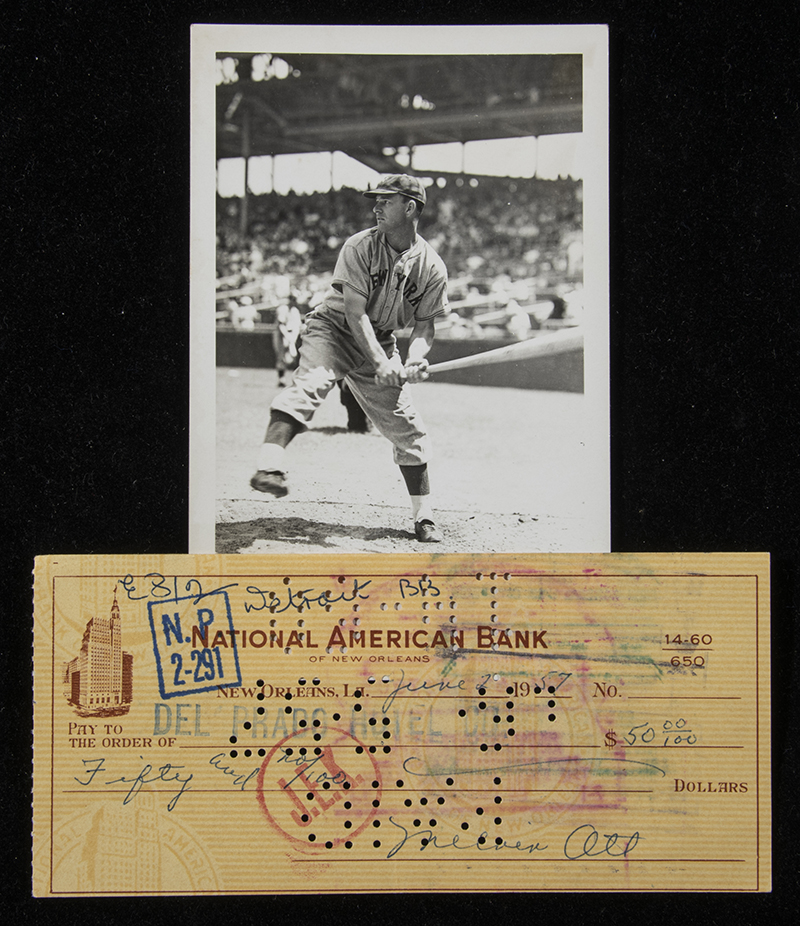 NEW YORK
E312 Detroit BB.
N.P.
2-291
NATIONAL AMERICAN BANK
OF NEW ORLEANS
14-60
650
NEW ORLEANS, LA. June 2 1957 NO.
DEL PRADO HOTEL
PAY TO
THE ORDER OF
$ 50 00/100
Fifty and no/100 DOLLARS
J.E.K.
Melvin Ott